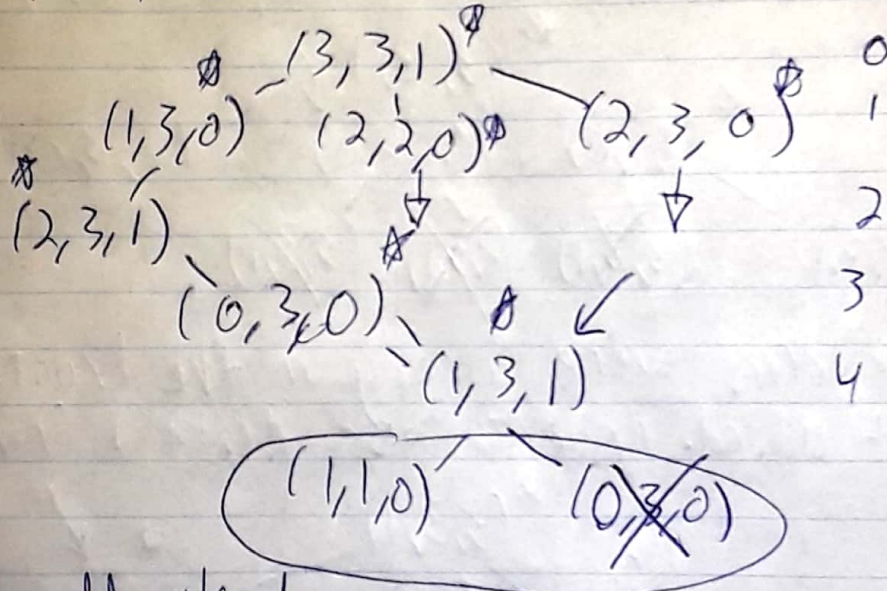 (3,3,1) 0
(1,3,0) (2,2,0) (2,3,0) 1
(2,3,1) 2
(0,3,0) 3
(1,3,1) 4
(1,1,0) (0,3,0)